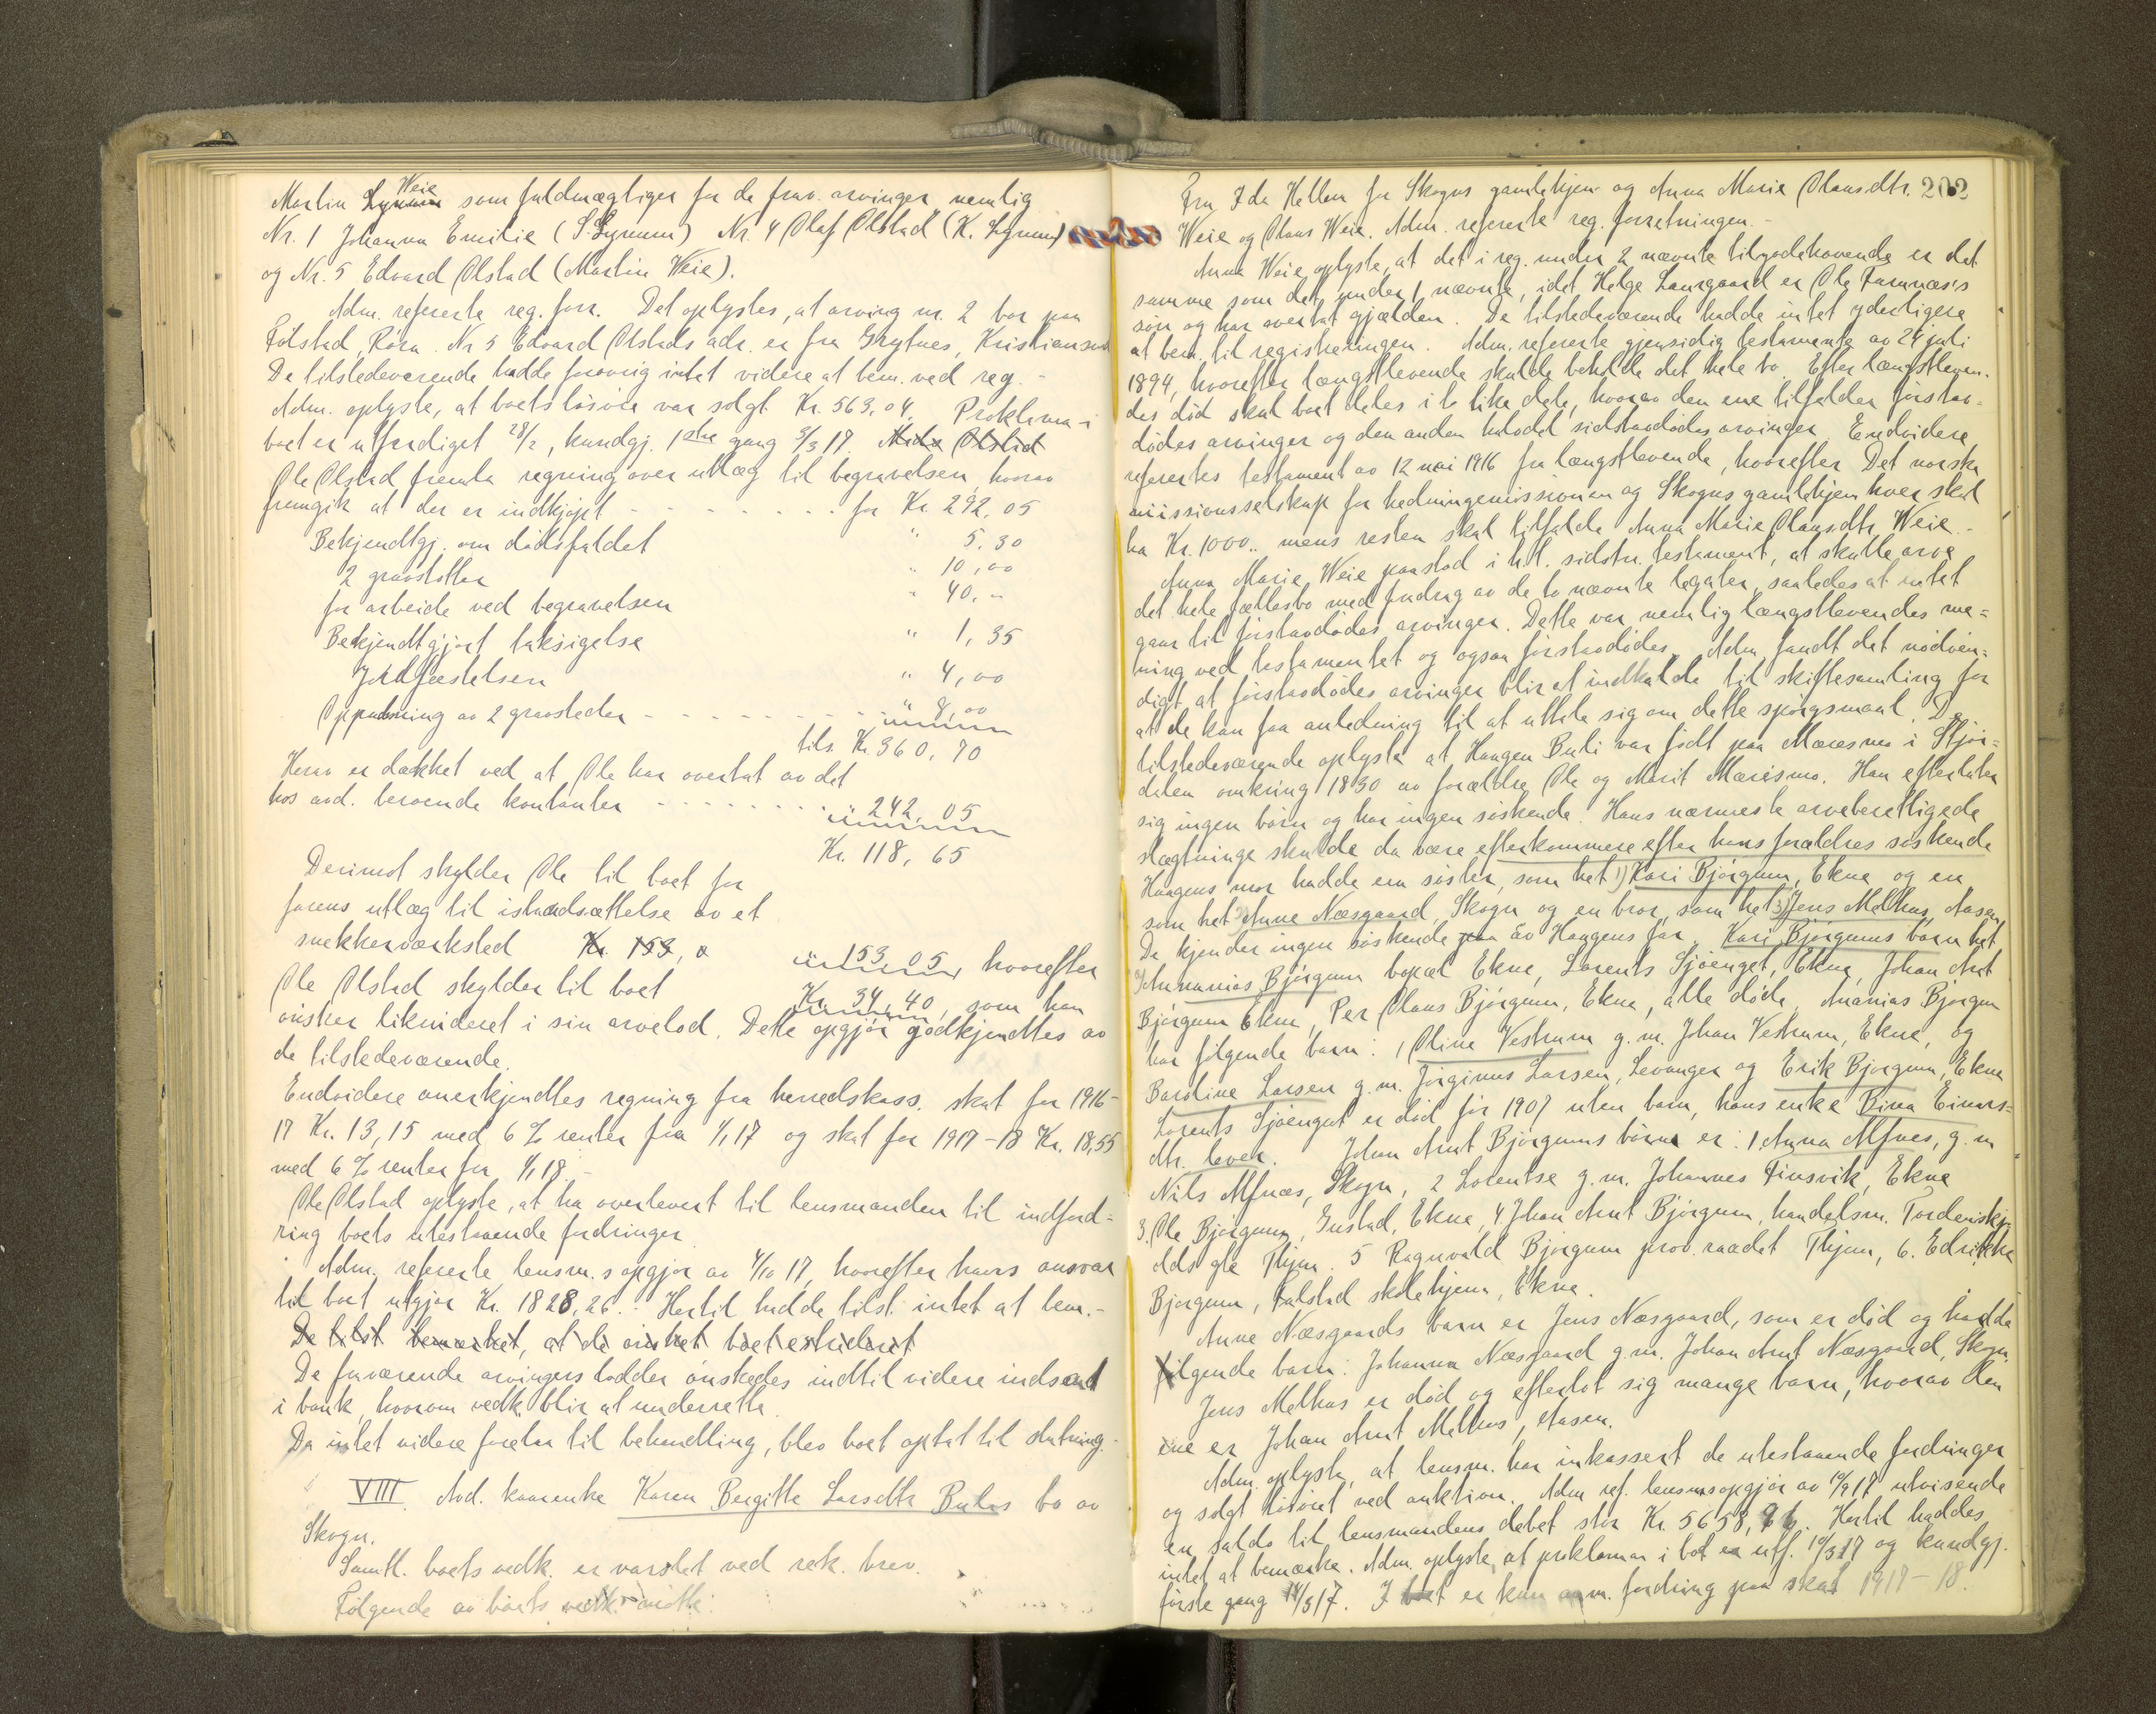 Martin Weie som fuldmægtiger for de frav. arvinger nemlig
Nr. 1 Johanna Emilie (S. Lynum) Nr. 4 Olaf Olstad (K. Lynum)
og Nr. 5 Edvard Olstad (Martin Weie).
Adm. refererte reg. forr. Det oplystes, at arving nr. 2 bor paa
Følstad, Røra. Nr 5 Edvard Olstads adr. er fra Grytnes, Kristiansund
De tilstedeværende hadde forøvrig intet videre at bem. ved reg. -
Adm. oplyste, at boets løsøre var solgt Kr. 563,04. Proklama i
boet er utfærdiget 28/2, kundgj. 1ste gang 5/3 17. Nils Olstad
Ole Olstad fremla regning over utlæg til begravelsen, hvorav
fremgik at der er indkjøpt - - - - - - - for Kr. 292,05
Bekjendtgj. om dødsfaldet " 5,30
2 gravstøtter " 10,00
for arbeide ved begravelsen " 40,-
Bekjendtgjort taksigelse " 1,35
Jordfæstelsen " 4,00
Oppudsning av 2 gravsteder - - - - - - - " 8,00
tils. Kr. 360,70
Herav er dækket ved at Ole har overtat av det
hos avd. beroende kontanter - - - - - - - " 242,05
Kr. 118,65
Derimot skylder Ole til boet for
farens utlæg til istandsættelse av et
snekkerværksted Kr. 153,0 " 153,05, hvorefter
Ole Olstad skylder til boet Kr. 34,40, som han
ønsker likvideret i sin arvelod. Dette opgjør godkjendtes av
de tilstedeværende.
Endvidere anerkjendtes regning fra herredskass. skat for 1916-
17 Kr. 13,15 med 6 % renter fra 1/1 17 og skat for 1917-18 Kr. 18,55
med 6 % renter fra 1/1 18. -
Ole Olstad oplyste, at ha overlevert til lensmanden til indford=
ring boets utestaaende fordringer
Adm. refererte lensm.s opgjør av 4/10 17, hvorefter hans ansvar
til boet utgjør Kr. 1828,26. - Hertil hadde tilst. intet at bem. -
De tilst bemerket, at de ønsket boet extraderet
De fraværende arvingers lodder ønskedes indtil videre indsat
i bank, hvorom vedk. blir at underrette
Da intet videre forelaa til behandling, blev boet optat til slutning. -
VIII. Avd. kaarenke Karen Bergitte Larsdtr Bulis bo av
Skogn.
Samtl. boets vedk. er varslet ved rek. brev.
Følgende av boets vedk. møtte:
Fru Ida Hellem for Skogns gamlehjem og Anna Marie Olausdtr. 202
Weie og Olaus Weie. Adm. refererte reg. forretningen. -
Anna Weie oplyste, at det i reg. under 2 nævnte tilgodehavende er det
samme som det under 1 nævnte, idet Helge Laurgaard er Ole Farmnæs's
søn og har overtat gjælden. De tilstedeværende hadde intet yderligere
at bem. til registreringen. Adm. refererte gjensidig testamente av 24 juli
1894, hvorefter længstlevende skulde beholde det hele bo. Efter længstleven-
des død skal boet deles i to like dele, hvorav den ene tilfalder førstav-
dødes arvinger og den anden halvdel sidstavdødes arvinger. Endvidere
refertes testament av 12 mai 1916 fra længstlevende, hvorefter Det norske
missionsselskap for hedningemissionen og Skogns gamlehjem hver skal
ha Kr. 1000.. mens resten skal tilfalde Anna Marie Olausdtr. Weie. -
Anna Marie Weie paastod i h.t. sidstn. testament, at skulle arve
det hele fællesbo med fradrag av de to nævnte legater, saaledes at intet
gaar til førstavdødes arvinger. Dette var nemlig længstlevendes me=
ning ved testamentet og ogsaa førstavdødes. Adm. fandt det nødven=
digt, at førstavdødes arvinger blir at indkalde til skiftesamling for
at de kan faa anledning til at uttale sig om dette spørgsmaal. De
tilstedeværende oplyste at Haagen Buli var født paa Mæresmo i Stjør=
dalen omkring 1830 av forældre Ole og Marit Mæresmo. Han efterlater
sig ingen børn og har ingen søskende. Hans nærmeste arveberettigede
slægtninge skulde da være efterkommere efter hans forældres søskende
Haagens mor hadde en søster, som het 1) Kari Bjørgum, Ekne og en
som het 2) Anne Næsgaard, Skogn og en bror, som het 3) Jens Melhus, Aasen,
De kjender ingen søskende av Haagens far. Kari Bjørgums barn het
Annanias Bjørgum bopæl Ekne, Lorents Sjøenget, Ekne, Johan Arnt
Bjørgum Ekne, Per Olaus Bjørgum, Ekne, alle døde, Ananias Bjørgum
har følgende barn: 1 Oline Vestrum g.m. Johan Vestrum, Ekne, og
Baroline Larsen g.m. Jørginus Larsen, Levanger og Erik Bjørgum, Ekne
Lorents Sjøenget er død før 1907 uten barn, hans enke Bina Einars=
dtr. lever. Johan Arnt Bjørgums børn er: 1. Anna Alfnes, g.m
Nils Alfnæs, Skogn, 2 Lorentse g.m. Johannes Finsvik, Ekne
3. Ole Bjørgum, Gustad, Ekne, 4. Johan Arnt Bjørgum, handelsm. Tordenskj-
olds gt. Thjem. 5 Ragnvald Bjørgum prov. raadet Thjem, 6. Edrikke
Bjørgum, Falstad skolehjem, Ekne.
Anne Næsgaards barn er Jens Næsgaard, som er død og hadde
følgende barn: Johanna Næsgaard g.m. Johan Arnt Næsgaard, Skogn.
Jens Melhus er død og efterlot sig mange barn, hvorav den
ene er Johan Arnt Melhus, Aasen.
Adm. oplyste, at lensm. har inkassert de utestaaende fordringer
og solgt løsøret ved auktion. Adm ref. lensmsopgjør av 10/9 17 utvisende
en saldo til lensmandens debet stor Kr. 5658,76. Hertil haddes
intet at bemærke. Adm. oplyste, at proklama i bot er utf. 10/3 17 og kundgj.
første gang 14/3 17. I boet er kun anm. fordring paa skat 1917-18.